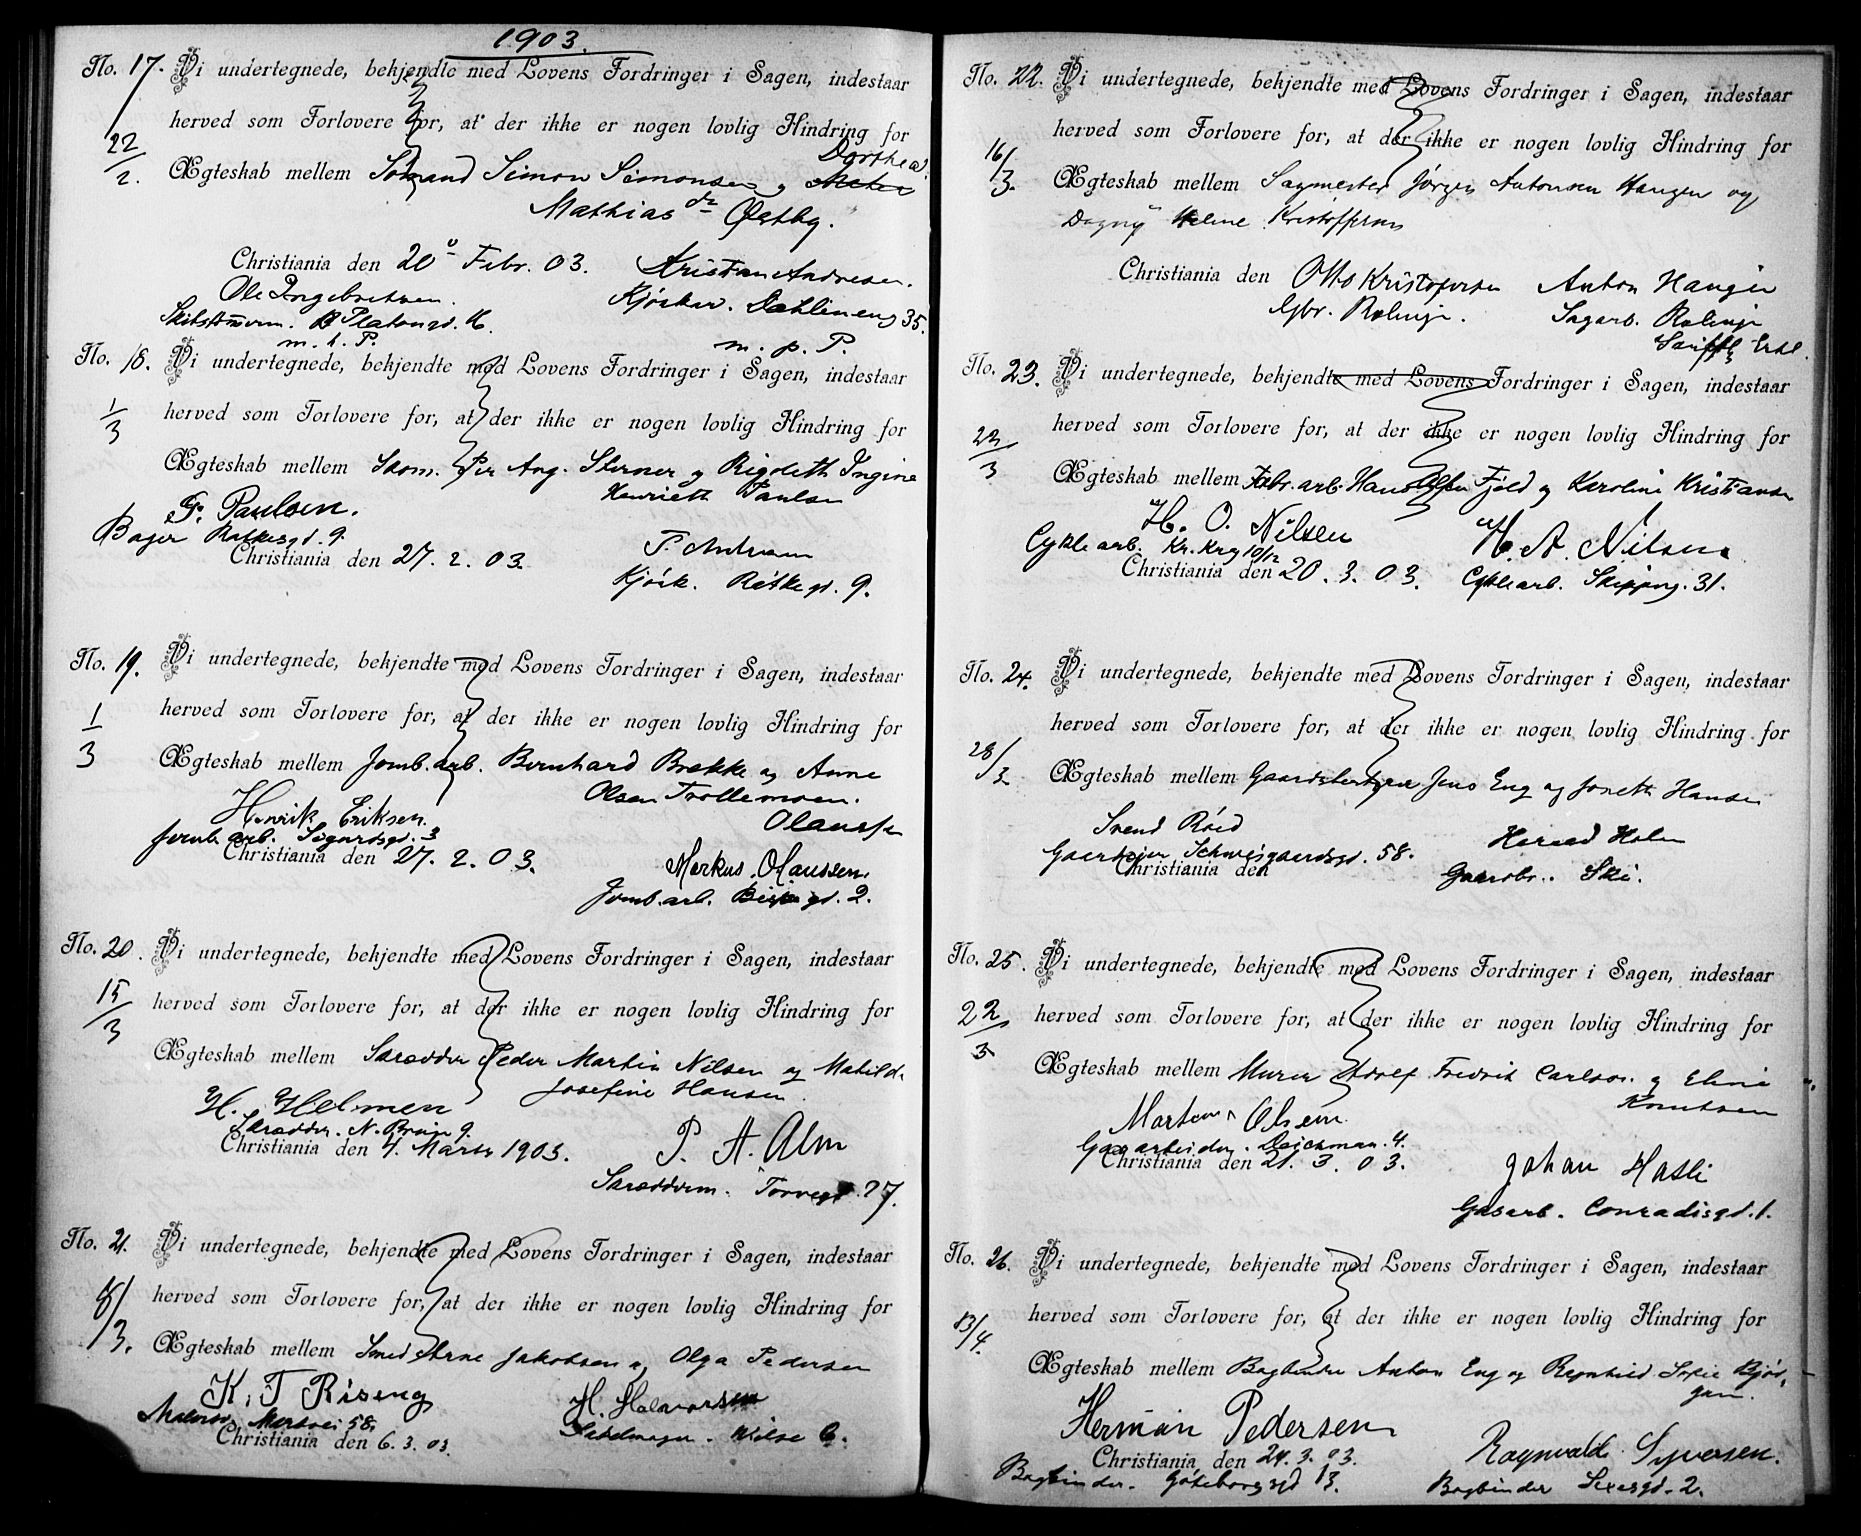 1903.
No. 17. Vi undertegnede, bekjendte med Lovens Fordringer i Sagen, indestaar
herved som Forlovere for, at der ikke er nogen lovlig Hindring for
22/2. Dorthea
Ægteskab mellem Sømand Simon Simonsen og
Mathiasdr Østby.
Christiania den 20 Febr. 03. Kristian Andresen.
Ole Ingebretsen. Kjørekar. Dæhlineng 35.
Platousg. 16.
m. p. P.
No. 18. Vi undertegnede, bekjendte med Lovens Fordringer i Sagen, indestaar
1/3 herved som Forlovere for, at der ikke er nogen lovlig Hindring for
Ægteskab mellem Skom. Per Aug. Sterner og Rigoleth Ingine
Henrieth Paulsen
F. Paulsen.
Bager Ratkesgd. 9.
Christiania den 27. 2. 03.
Kjørk. Ratkegd. 9.
No. 19. Vi undertegnede, bekjendte med Lovens Fordringer i Sagen, indestaar
1/3 herved som Forlovere for, at der ikke er nogen lovlig Hindring for
Ægteskab mellem Jernb. arb. Bernhard Brekke og Anne
Olsen Trollemoen.
Henrik Eriksen.
Jernb. arb. Sigurdsgd. 3
Christiania den 27. 2. 03. Markus Olaussen.
Jernb. arb. Bispegd. 2.
No. 20. Vi undertegnede, bekjendte med Lovens Fordringer i Sagen, indestaar
15/3 herved som Forlovere for, at der ikke er nogen lovlig Hindring for
Ægteskab mellem Skrædder Peder Martin Nilsen og Matilde
Josefine Hansen
H. Helmen
Skrædder. N. 9.
Christiania den 4. Marts 1903. P. A. Alm
Skrædderm. Torvegd. 27.
No. 21. Vi undertegnede, bekjendte med Lovens Fordringer i Sagen, indestaar
8/3. herved som Forlovere for, at der ikke er nogen lovlig Hindring for
Ægteskab mellem Smed Arne Jakobsen og Olga Pedersen
K. T. Riseng H. Halvorsen
58. Sadelmager.
Christiania den 6. 3. 03.
No. 22. Vi undertegnede, bekjendte med Lovens Fordringer i Sagen, indestaar
16/3. herved som Forlovere for, at der ikke er nogen lovlig Hindring for
Ægteskab mellem Sagmester Jørgen Antonsen Haugen og
Dagny Helene Kristoffersen
Christiania den Otto Kristofersen Anton Haugen
Gbr. Rælinge. Sagarb. Rælinge
No. 23. Vi undertegnede, bekjendte med Lovens Fordringer i Sagen, indestaar
22/3 herved som Forlovere for, at der ikke er nogen lovlig Hindring for
Ægteskab mellem Fabr. arb. Hans Olsen Fjeld og Karoline Kristiansen
H. O. Nilsen H. A. Nilsen
Cyklearb. Kr. Krog 10/12
Christiania den 20. 3. 03. Cyklearb. Skipperg. 31.
No. 24. Vi undertegnede, bekjendte med Lovens Fordringer i Sagen, indestaar
28/3 herved som Forlovere for, at der ikke er nogen lovlig Hindring for
Ægteskab mellem Gaardsbestyrer Jens Eng og Joneth Hansen
Svend Røed Harald Holm
Gaardejer Schweigaardsgd. 58.
Christiania den Gaardbr. Ski.
No. 25. Vi undertegnede, bekjendte med Lovens Fordringer i Sagen, indestaar
22/3 herved som Forlovere for, at der ikke er nogen lovlig Hindring for
Ægteskab mellem Murer Adolf Fredrik Carlson og Eline
Knutsen
Martin Olsen.
Gasarbeider. Deichman. 4.
Christiania den 21. 3. 03. Johan Hasli
Gasarb. Conradisgd. 1.
No. 26. Vi undertegnede, bekjendte med Lovens Fordringer i Sagen, indestaar
13/4. herved som Forlovere for, at der ikke er nogen lovlig Hindring for
Ægteskab mellem Bogbinder Anton Eng og Ragnhild Sofie Bjør-
gum.
Herman Pedersen
Christiania den 24. 3. 03. Ragnvald Syversen.
Bogbinder. Göteborggd 13. Bogbinder Sexesgd. 2.